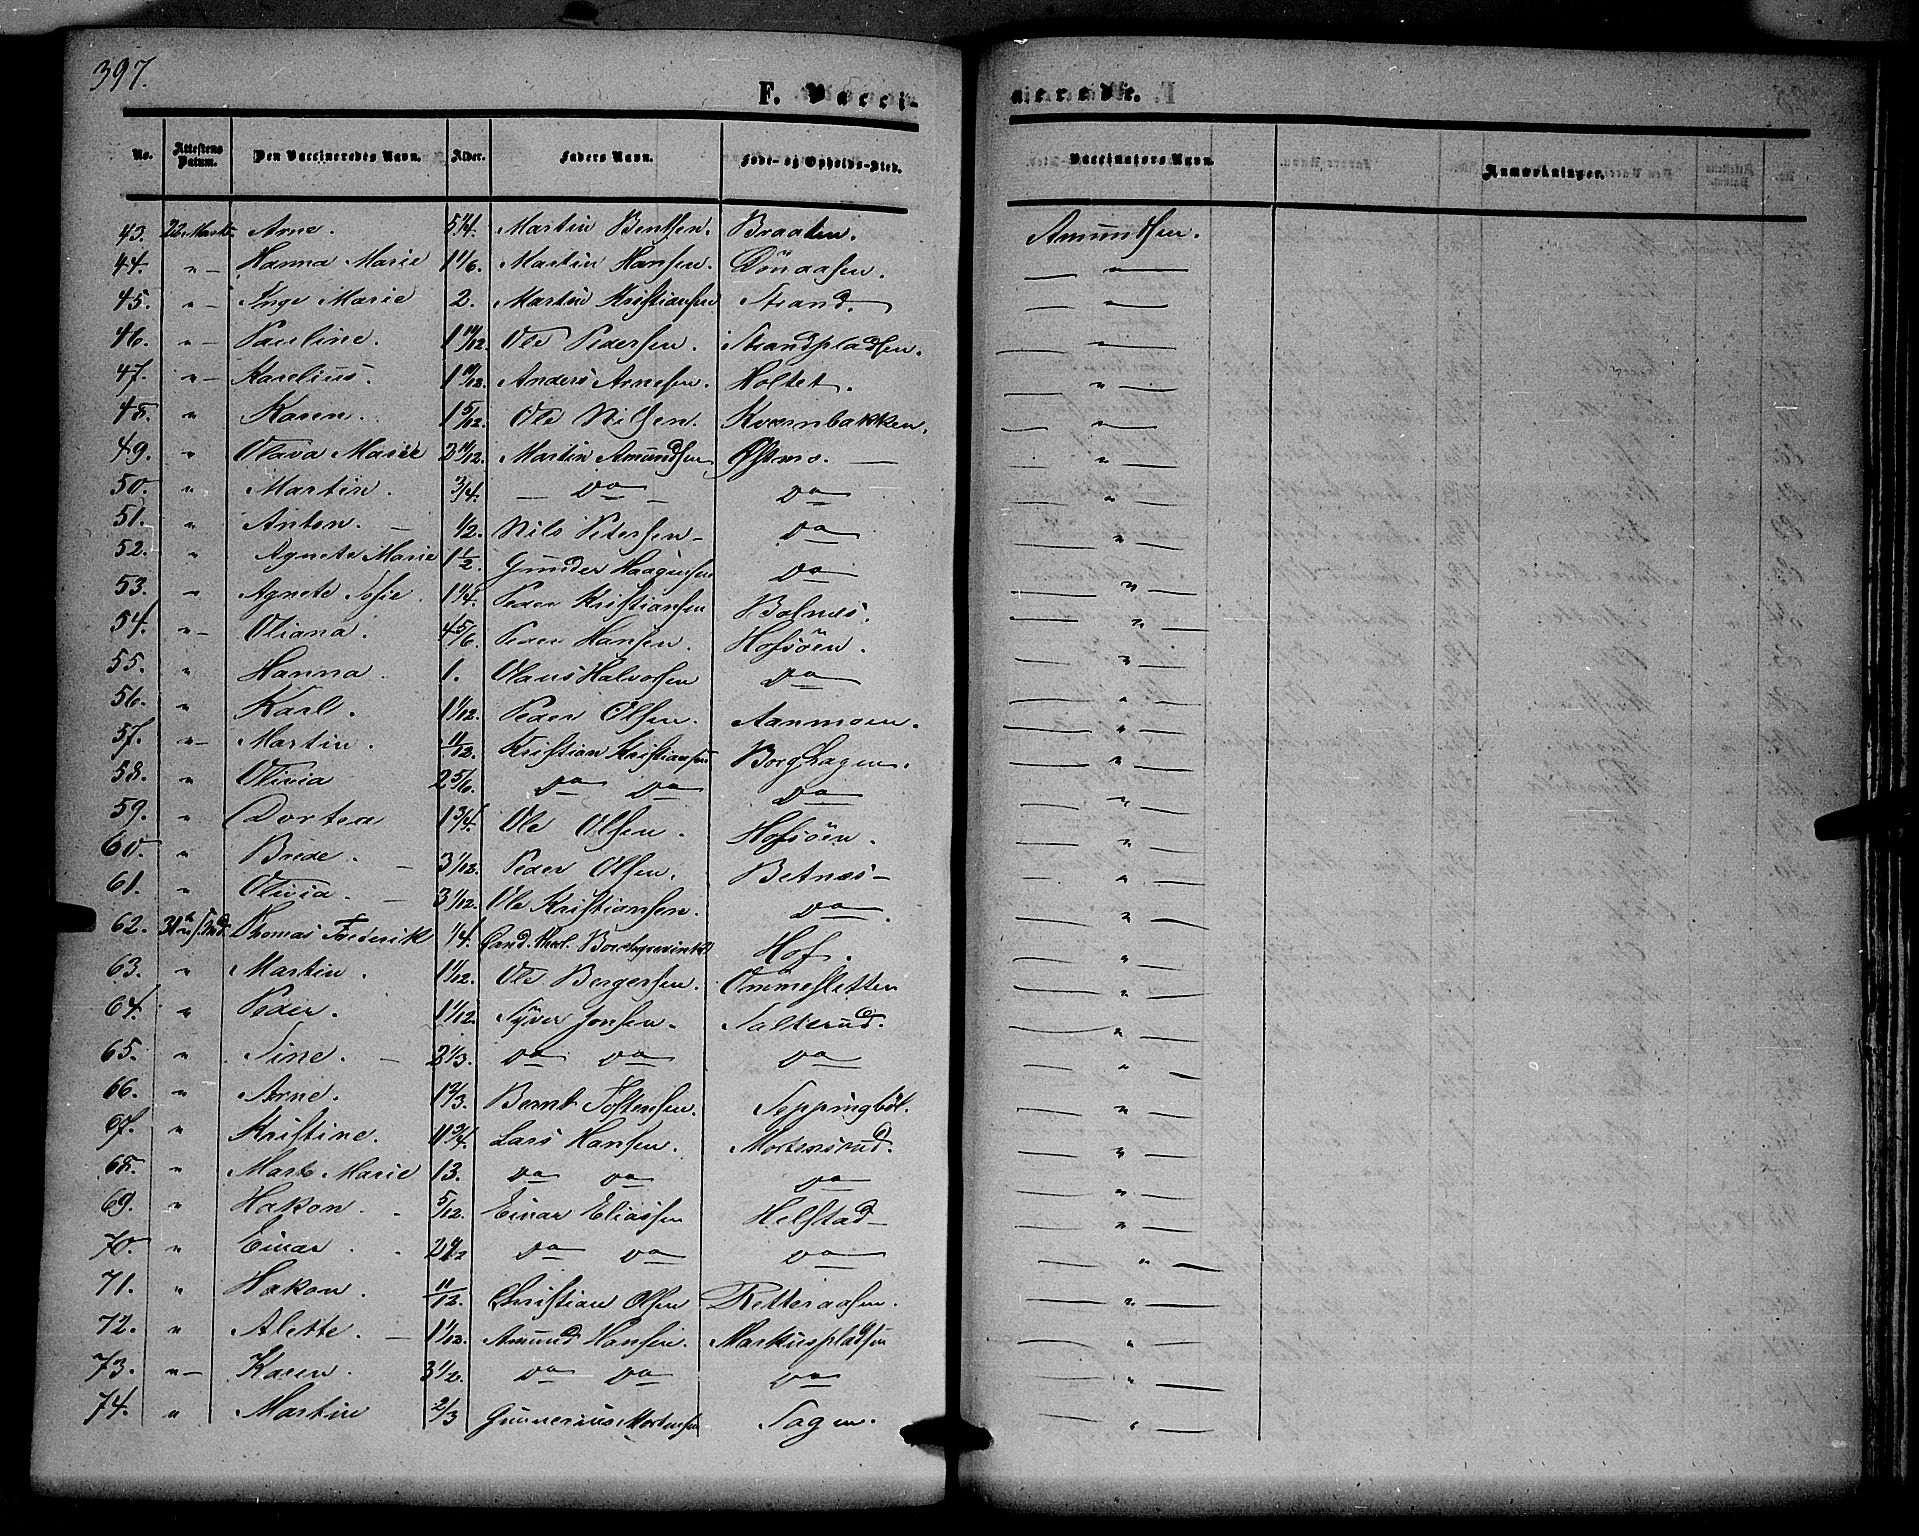 397.
F. Vacci-nerede.
No. Attestens Datum. Den Vaccineredes Navn. Alder. Faders Navn. Føde- og Opholds-Sted. Vaccinateurs Navn. Anmærkninger.
43. 22 Marts. Arne. 5 1/4. Martin Bentsen. Braaten. Amundsen.
44. " – Hanna Marie 1 1/6. Martin Hansen. Dönaasen. — " —
45. " – Inge Marie 2. Martin Kristiansen Strand. — " —
46. " – Pauline. 1 10/12. Ole Pedersen. Strandpladsen. — " —
47. " – Karelius. 1 10/12. Anders Arnesen. Holtet. — " —
48. " Karen. 1 5/12. Ole Nilsen. Kvernbakken. — " —
49. " Olava Marie 2 11/12. Martin Amundsen Östmo. — — " —
50. " Martin. 3/4. — Do — Do — " —
51. " Anton. — 1/2. Nils Petersen – Do — " —
52. " Agnete Marie 1 1/2. Gunder Haagensen Do — " —
53. " Agnete Sofie. 1 1/4. Peder Kristiansen Bolnæs. — " —
54. " – Oliana. 4 5/6. Peder Hansen. Hofsöen. — " —
55. " Hanna 1. Olaus Halvorsen Do — " —
56. " Karl. 1 1/12. Peder Olsen. Aanmoen. — " —
57. " – Martin. 11/12. Kristian Kristiansen Borghagen. — " —
58. " Olivia 2 5/6. Do Do Do — " —
59. " Dortea 1 3/4. Ole Olsen. Hofsöen. — " —
60. " Brede. – 3 1/12. Peder Olsen. Betnæs – — " —
61. " Olivia. – 3 1/12. Ole Kristiansen. Do — " —
62. Thomas Frederik 1/4. Cand. theol. Borchgrevink Hof. — " —
63. " Martin. 1 1/12. Ole Bergersen. Ommesletten — " —
64. " Peder. 1 1/12. Syver Jonsen. Salterud. — " —
65. " Sine. – 2 1/3. Do Do Do — " —
66. " Arne. 1 2/3. Bernt Tostensen. Seppingböl. — " —
67. " Kristine. 11 3/4. Lars Hansen. Mortensrud. — " —
68. " Marte Marie 13. Do Do Do — " —
69. " Hakon. . 5/12. Einar Eliassen Helstad – — " —
70. " Einar. . Do Do Do — " —
71. " Hakon. 11/12. Christian Olsen Retteraasen. — " —
72. " Alette. — 1 1/12. Amund Hansen. Markuspladsen — " —
73. " – Karen 3 1/2. Do Do Do — " —
74. " Martin 2/3 Gunnerius Mortensen Sagen. — " —